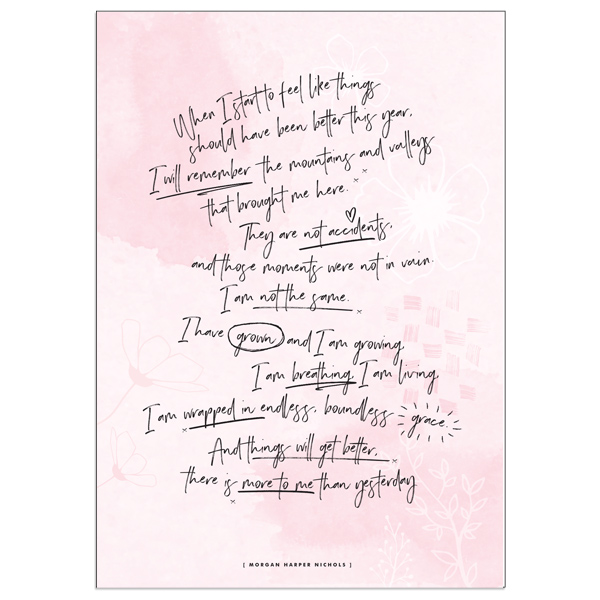 When I start to feel like things
should have been better this year,
I will remember the mountains and valleys
that brought me here.
They are not accidents,
and those moments were not in vain.
I am not the same.
I have grown and I am growing.
I am breathing. I am living.
I am wrapped in endless, boundless grace.
And things will get better.
there is more to me than yesterday
[ MORGAN HARPER NICHOLS ]